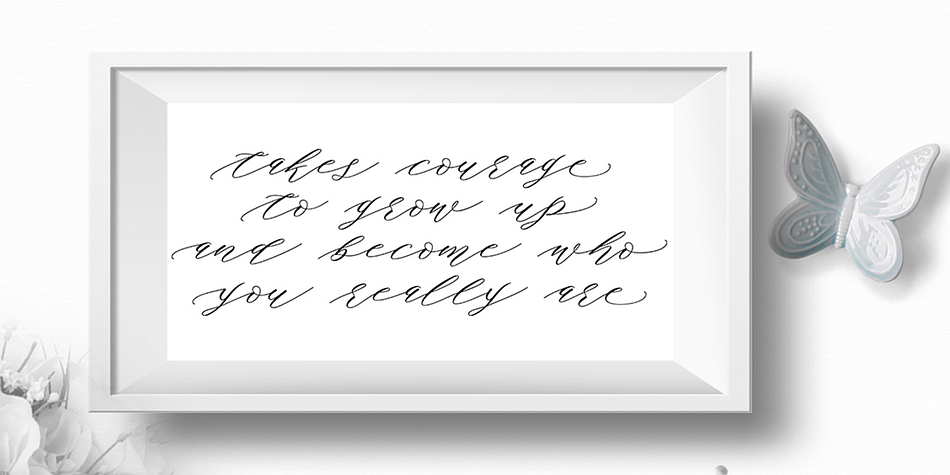 takes courage
to grow up
and become who
you really are